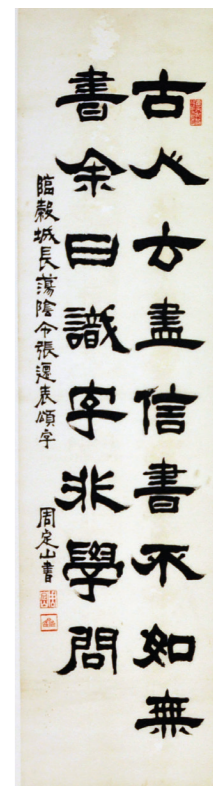 古人云盡信書不如無
書余曰識字非學問
臨穀城長蕩陰令張遷表頌字
周定山書